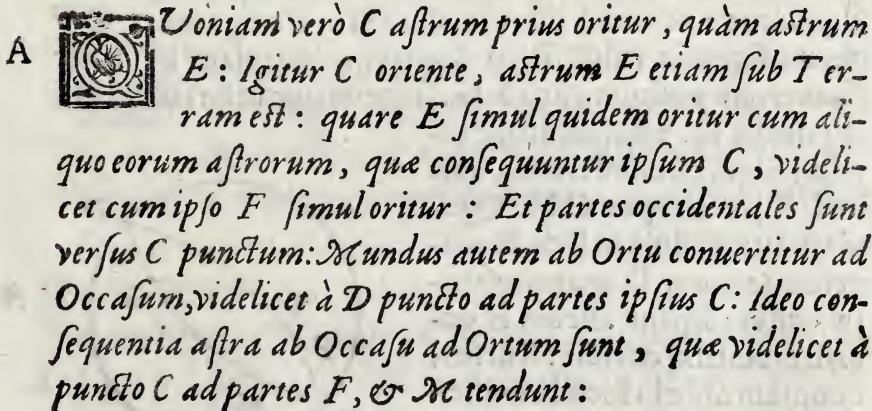 A QVoniam verò C aſtrum prius oritur, quàm aſtrum
E: Igitur C oriente, aſtrum E etiam ſub Ter-
ram eſt: quare E ſimul quidem oritur cum ali-
quo eorum aſtrorum, quæ conſequuntur ipſum C, videli-
cet cum ipſo F ſimul oritur: Et partes occidentales ſunt
verſus C punctum: Mundus autem ab Ortu conuertitur ad
Occaſum, videlicet à D puncto ad partes ipſius C: Ideo con-
ſequentia aſtra ab Occaſu ad Ortum ſunt, quæ videlicet à
puncto C ad partes F, & M tendunt: